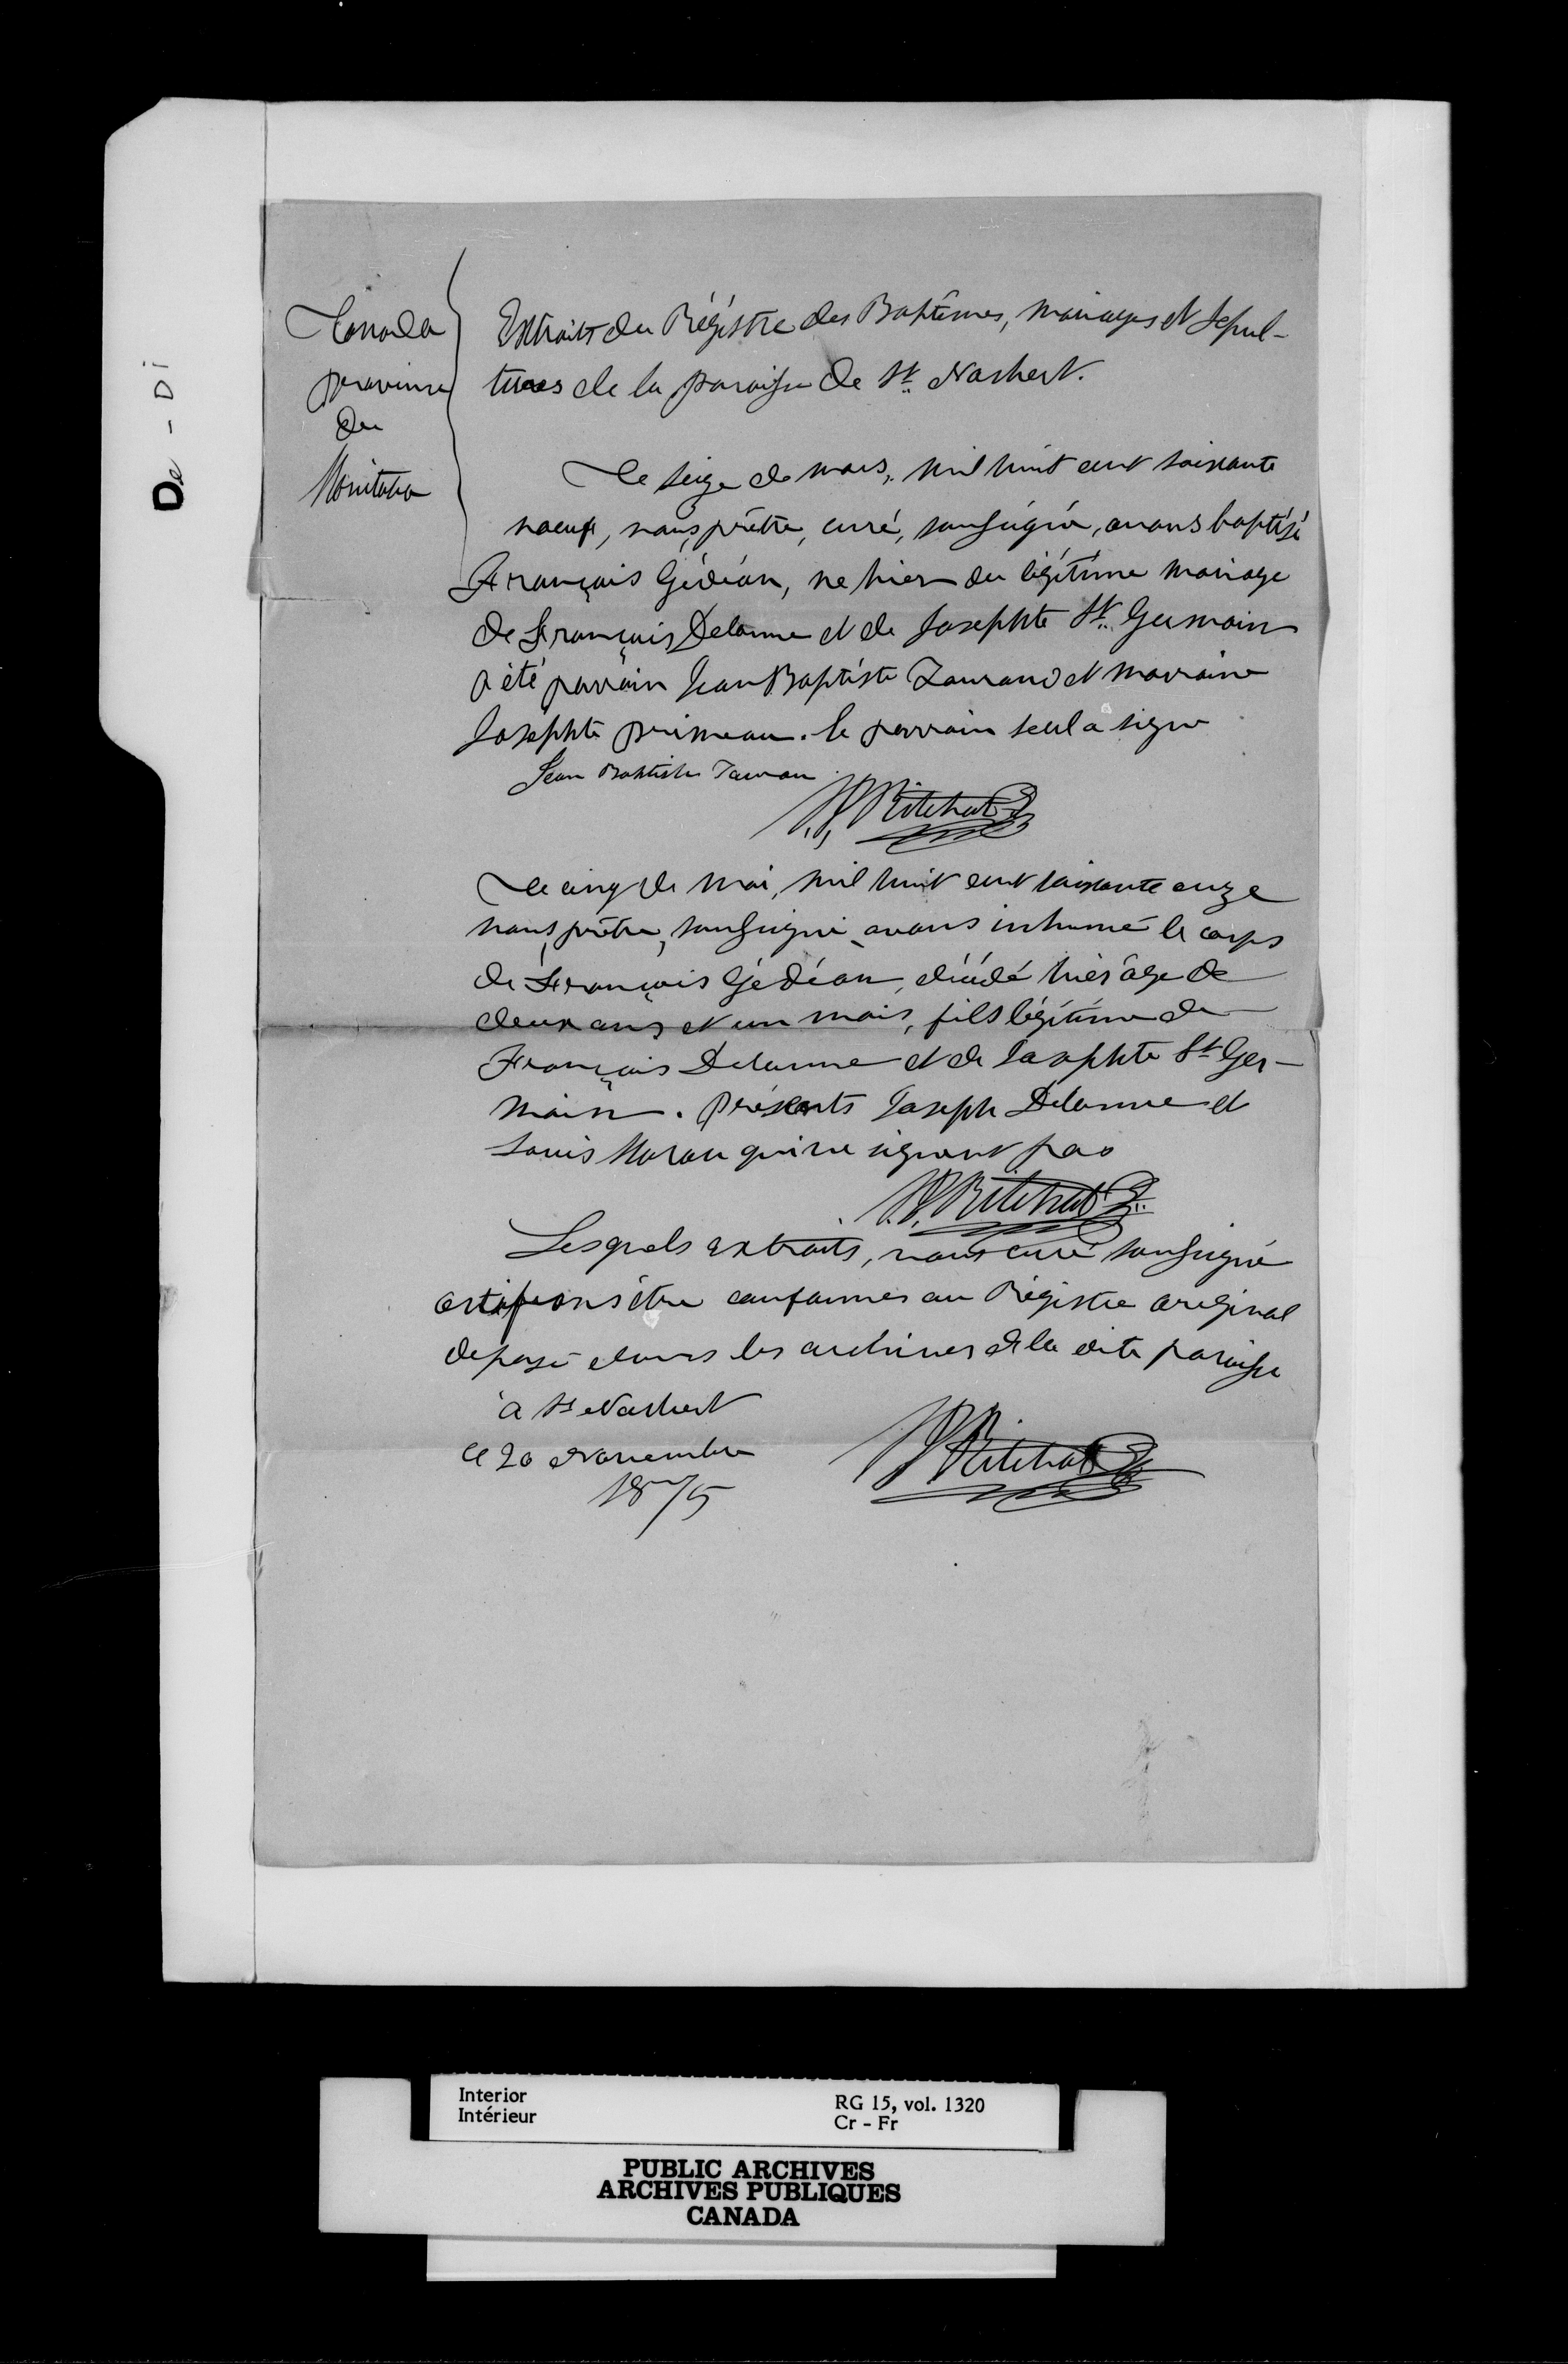 De - Di
Canada
province
du
Manitoba
Extraits du Régistre des Baptêmes, mariages et sepul-
tures de la paroisse de St. Norbert.
Le seize de mars, mil huit cent soixante
noeuf, nous, prêtre, curé, soussigné, avons baptisé
François Gédéon, ne hier du légitime mariage
de François Delorme et de Josephte St. Germain
a été parrain Jean Baptiste Laurand et marraine
Josephte primeau. le parrain seul a signe
Jean Baptiste
N. J. Ritchot Ptr
Le cinq de mai, mil huit cent soixante onze
nous, prêtre, soussigné, avons inhumé le corps
de François Gédéon, décédé hier âge de
deux ans et un mois, fils légitime de
François Delorme et de Josephte St Ger-
main. présents Joseph Delorme et
Louis Moran qui ne signent pas
N. J. Ritchot Ptr
Lesquels extraits, nous curé soussigné
certifions être conformes au Régistre original
deposé dans les archives de la dite paroisse
à St Norbert
ce 20 Novembre
1875
N J Ritchot Ptr
Interior
Intérieur
RG 15, vol. 1320
Cr - Fr
PUBLIC ARCHIVES
ARCHIVES PUBLIQUES
CANADA